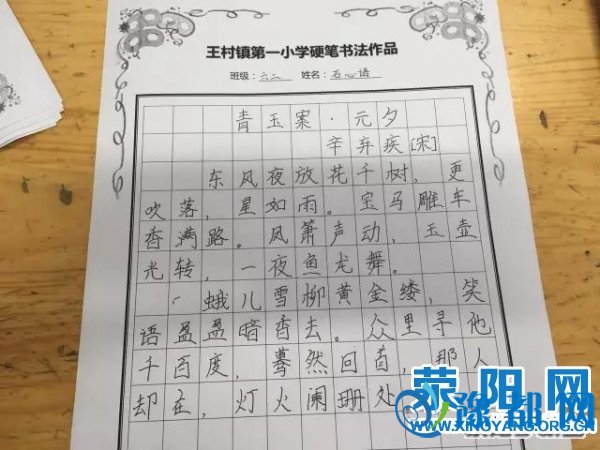 王村镇第一小学硬笔书法作品
班级：六二 姓名：石心语
青玉案·元夕
辛弃疾[宋]
东风夜放花千树，更
吹落，星如雨。宝马雕车
香满路。凤箫声动，玉壶
光转，一夜鱼龙舞。
蛾儿雪柳黄金缕，笑
语盈盈暗香去。众里寻他
千百度，蓦然回首，那人
却在，灯火阑珊处。
荥阳网
豫都网
WWW.XINGYANG.ORG.CN